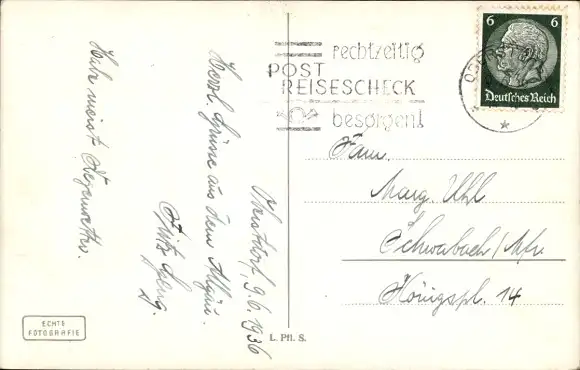 Oberstdorf, 9.6.1936
Herzl. Grüsse aus dem Allgäu.
Fritz
Habe meist Regenwetter.
ECHTE
FOTOGRAFIE
L. Pfl. S.
rechtzeitig
POST
REISESCHECK
besorgen!
6 6
Deutsches Reich
Fam.
Marg. Uhl
Schwabach/Mfr.
Königspl. 14